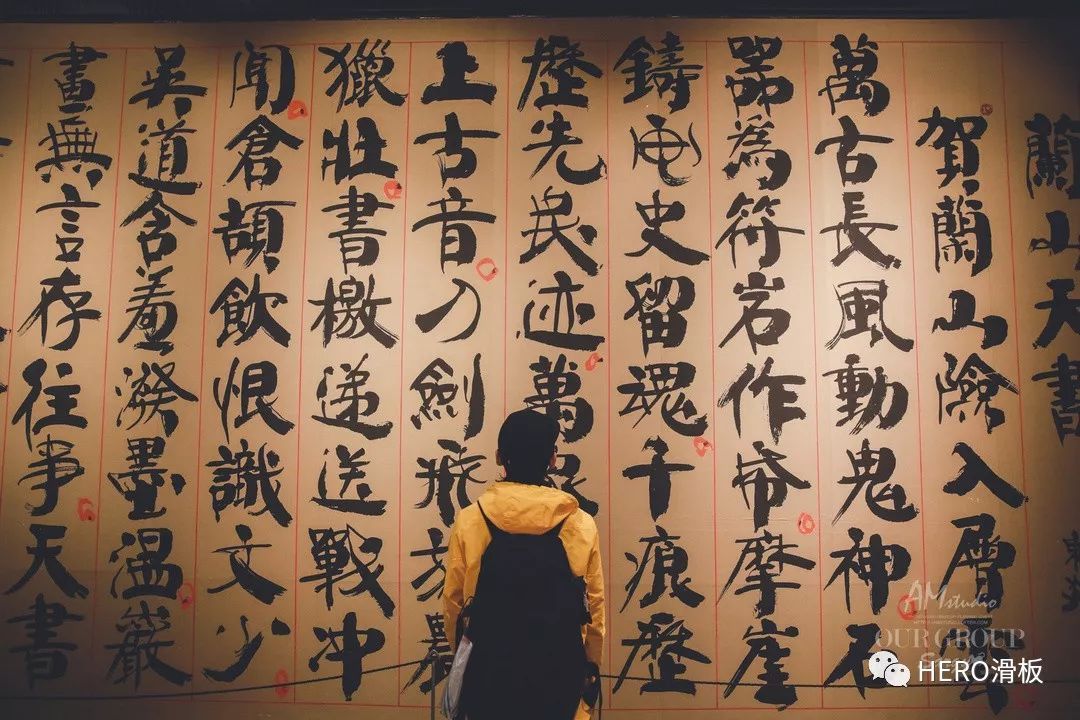 蘭山天書
賀蘭山險入層
萬古長風動鬼神石
器為符岩作帋摩崖
鑄史留魂千痕歷
歷先民迹萬
上古音刀劍飛
獵壯書檄遞送戰冲
聞倉頡飲恨識文少
吳道含羞潑墨溫巖
畫無言存往事天書
AMstudio
OUR GROUP
HERO滑板